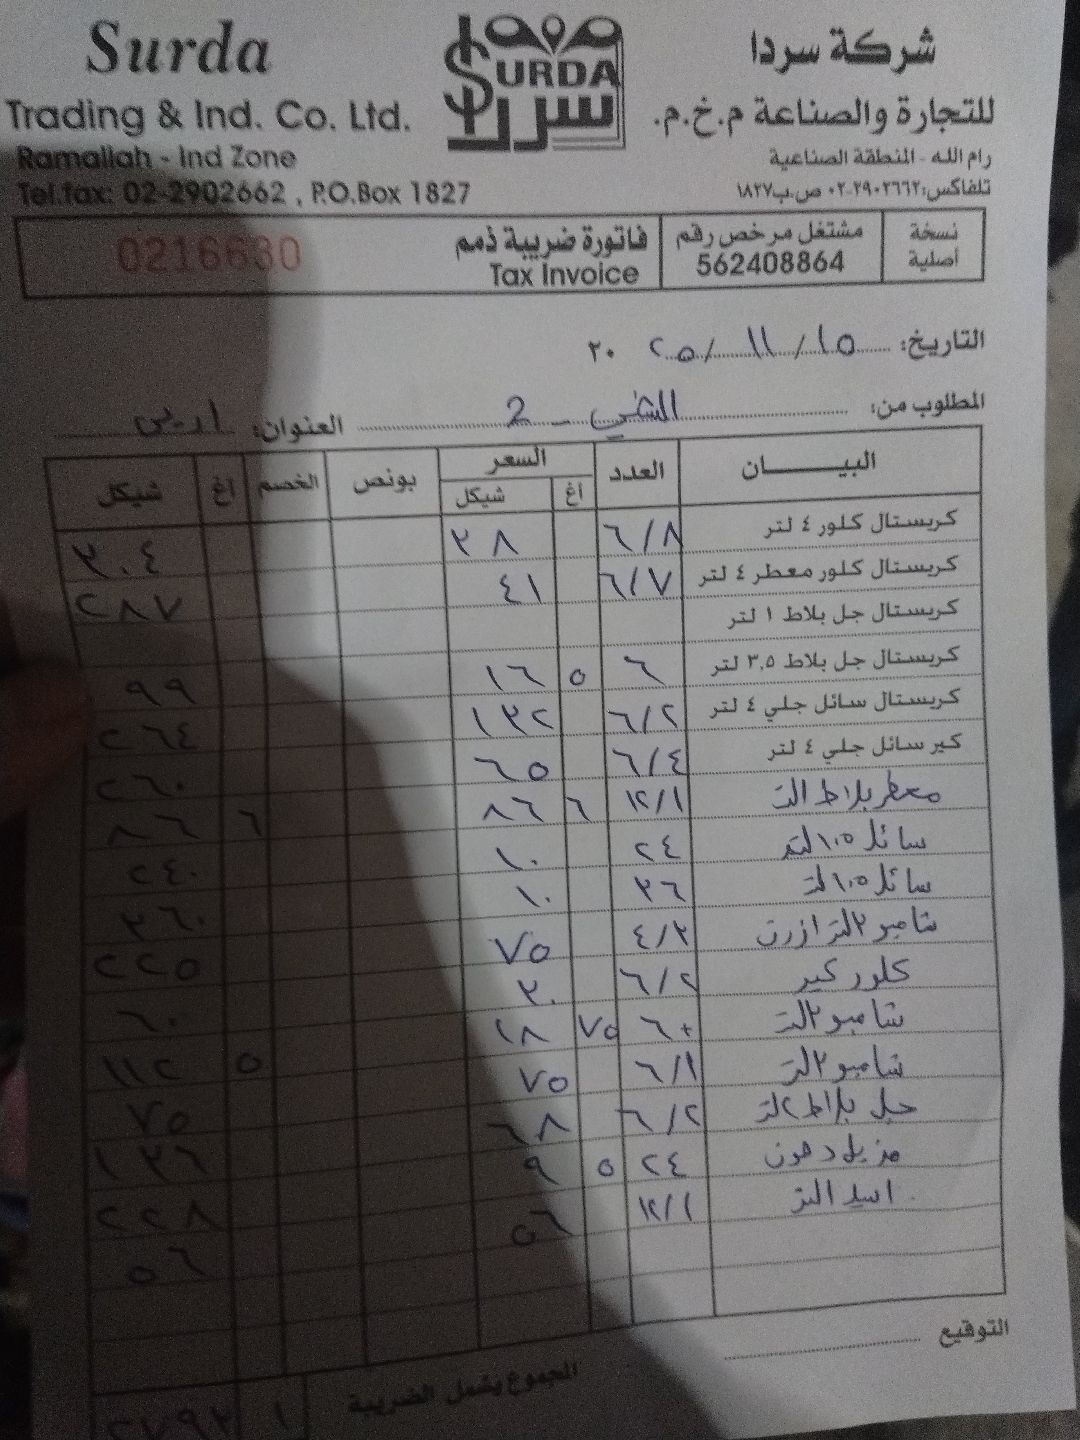 Surda
Trading & Ind. Co. Ltd.
Ramallah - Ind Zone
Tel.fax: 02-2902662 , P.O.Box 1827
SURDA
سردا
شركة سردا
للتجارة والصناعة م.خ.م.
رام الله - المنطقة الصناعية
تلفاكس: ٢٩٠٢٦٦٢-٠٢ ص.ب ١٨٢٧
نسخة أصلية
مشتغل مرخص رقم 562408864
فاتورة ضريبة ذمم
Tax Invoice
0216630
التاريخ: ١٥ / ١١ / ٢٥ ٢٠
المطلوب من: 2 العنوان:
البيـــــان العدد السعر بونص الخصم اغ شيكل
اغ شيكل
كريستال كلور ٤ لتر ٦/٨ ٣٨ ٣٠٤
كريستال كلور معطر ٤ لتر ٦/٧ ٤١ ٢٨٧
كريستال جل بلاط ١ لتر
كريستال جل بلاط ٣,٥ لتر ٦ ٥ ١٦ ٩٩
كريستال سائل جلي ٤ لتر ٦/٢ ١٣٢ ٢٦٤
كير سائل جلي ٤ لتر ٦/٤ ٦٥ ٢٦٠
معطر بلاط التر ١٢/١ ٦ ٨٦ ٦ ٨٦
سائل ١.٥ لتر ٢٤ ١٠ ٢٤٠
سائل ١.٥ لتر ٣٦ ١٠ ٣٦٠
شامبو ٣لتر ازرق ٤/٣ ٧٥ ٢٢٥
كلور كير ٦/٢ ٣٠ ٦٠
شامبو ٣لتر ٦+ ٧٥ ١٨ ٥ ١١٢
شامبو ٣لتر ٦/١ ٧٥ ٧٥
جل بلاط ٢لتر ٦/٢ ٦٨ ١٣٦
مزيل دهون ٢٤ ٥ ٩ ٢٢٨
اسيد التر ١٢/١ ٥٦ ٥٦
التوقيع
المجموع يشمل الضريبة ١ ٢٧٩٣